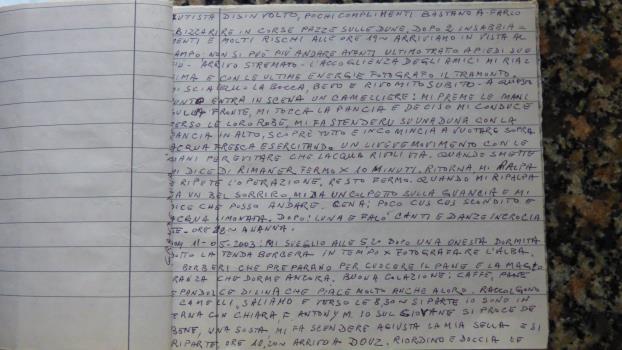 AUTISTA DISINVOLTO, POCHI COMPLIMENTI BASTANO A FARLO
SBIZZARIRE IN CORSE PAZZE SULLE DUNE, DOPO 2 INSABBIA=
MENTI E MOLTI RISCHI ALLE ORE 19~ ARRIVIAMO IN VISTA AL
CAMPO: NON SI PUÒ PIÙ ANDARE AVANTI ULTIMO TRATO A PIEDI
ARRIVO STREMATO - L'ACCOGLIENZA DEGLI AMICI MI RIAL
IMA E CON LE ULTIME ENERGIE FOTOGRAFO IL TRAMONTO.
MI SCIAQUO LA BOCCA, BEVO E RIVOMITO SUBITO. A QUESTO
PUNTO ENTRA IN SCENA UN CAMELLIERE: MI PREME LE MANI
SULLA FRONTE, MI TOCCA LA PANCIA E DECISO MI CONDUCE
VERSO LE LORO ROBE, MI FA STENDERE SU UNA DUNA CON LA
PANCIA IN ALTO, SCOPRE TUTTO E INCOMINCIA A VUOTARE SOPRA
ACQUA FRESCA ESERCITANDO UN LIEVE MOVIMENTO CON LE
MANI PER EVITARE CHE L'ACQUA RIFILI VIA. QUANDO SMETTE
MI DICE DI RIMANER FERMO X 10 MINUTI. RITORNA, MI PALPA
E RIPETE L'OPERAZIONE, RESTO FERMO. QUANDO MI RIPALPA
FA UN BEL SORRIRO, MI DA UN COLPETTO SULLA GUANCIA E MI
DICE CHE POSSO ANDARE. CENA: POCO CUS CUS SCONDITO E
ACQUA LIMONATA. DOPO: LUNA E FALO' CANTI E DANZE INCROCIA
TE - ORE 23~ A NANNA.
11-05-2003: MI SVEGLIO ALLE 5,20 DOPO UNA ONESTA DORMITA
SOTTO LA TENDA BERBERA IN TEMPO X FOTOGRAFARE L'ALBA.
I BERBERI CHE PREPARANO PER CUOCERE IL PANE E LA MAGGIO
RANZA CHE DORME ANCORA. BUONA COLAZIONE: CAFFE, PANE
E PANDOLCE DI LINA CHE PIACE MOLTO ANCHE A LORO. RACCOLGONO
I CAMELLI, SALIAMO E VERSO LE 8,30~ SI PARTE IO SONO IN
TERNA CON CHIARA E ANTONY M. IO SUL GIOVANE SI PROCEDE
BENE, UNA SOSTA MI FA SCENDERE AGIUSTA LA MIA SELLA E SI
RIPARTE, ORE 10,20~ ARRIVO A DOUZ. RIORDINO E DOCCIA LE